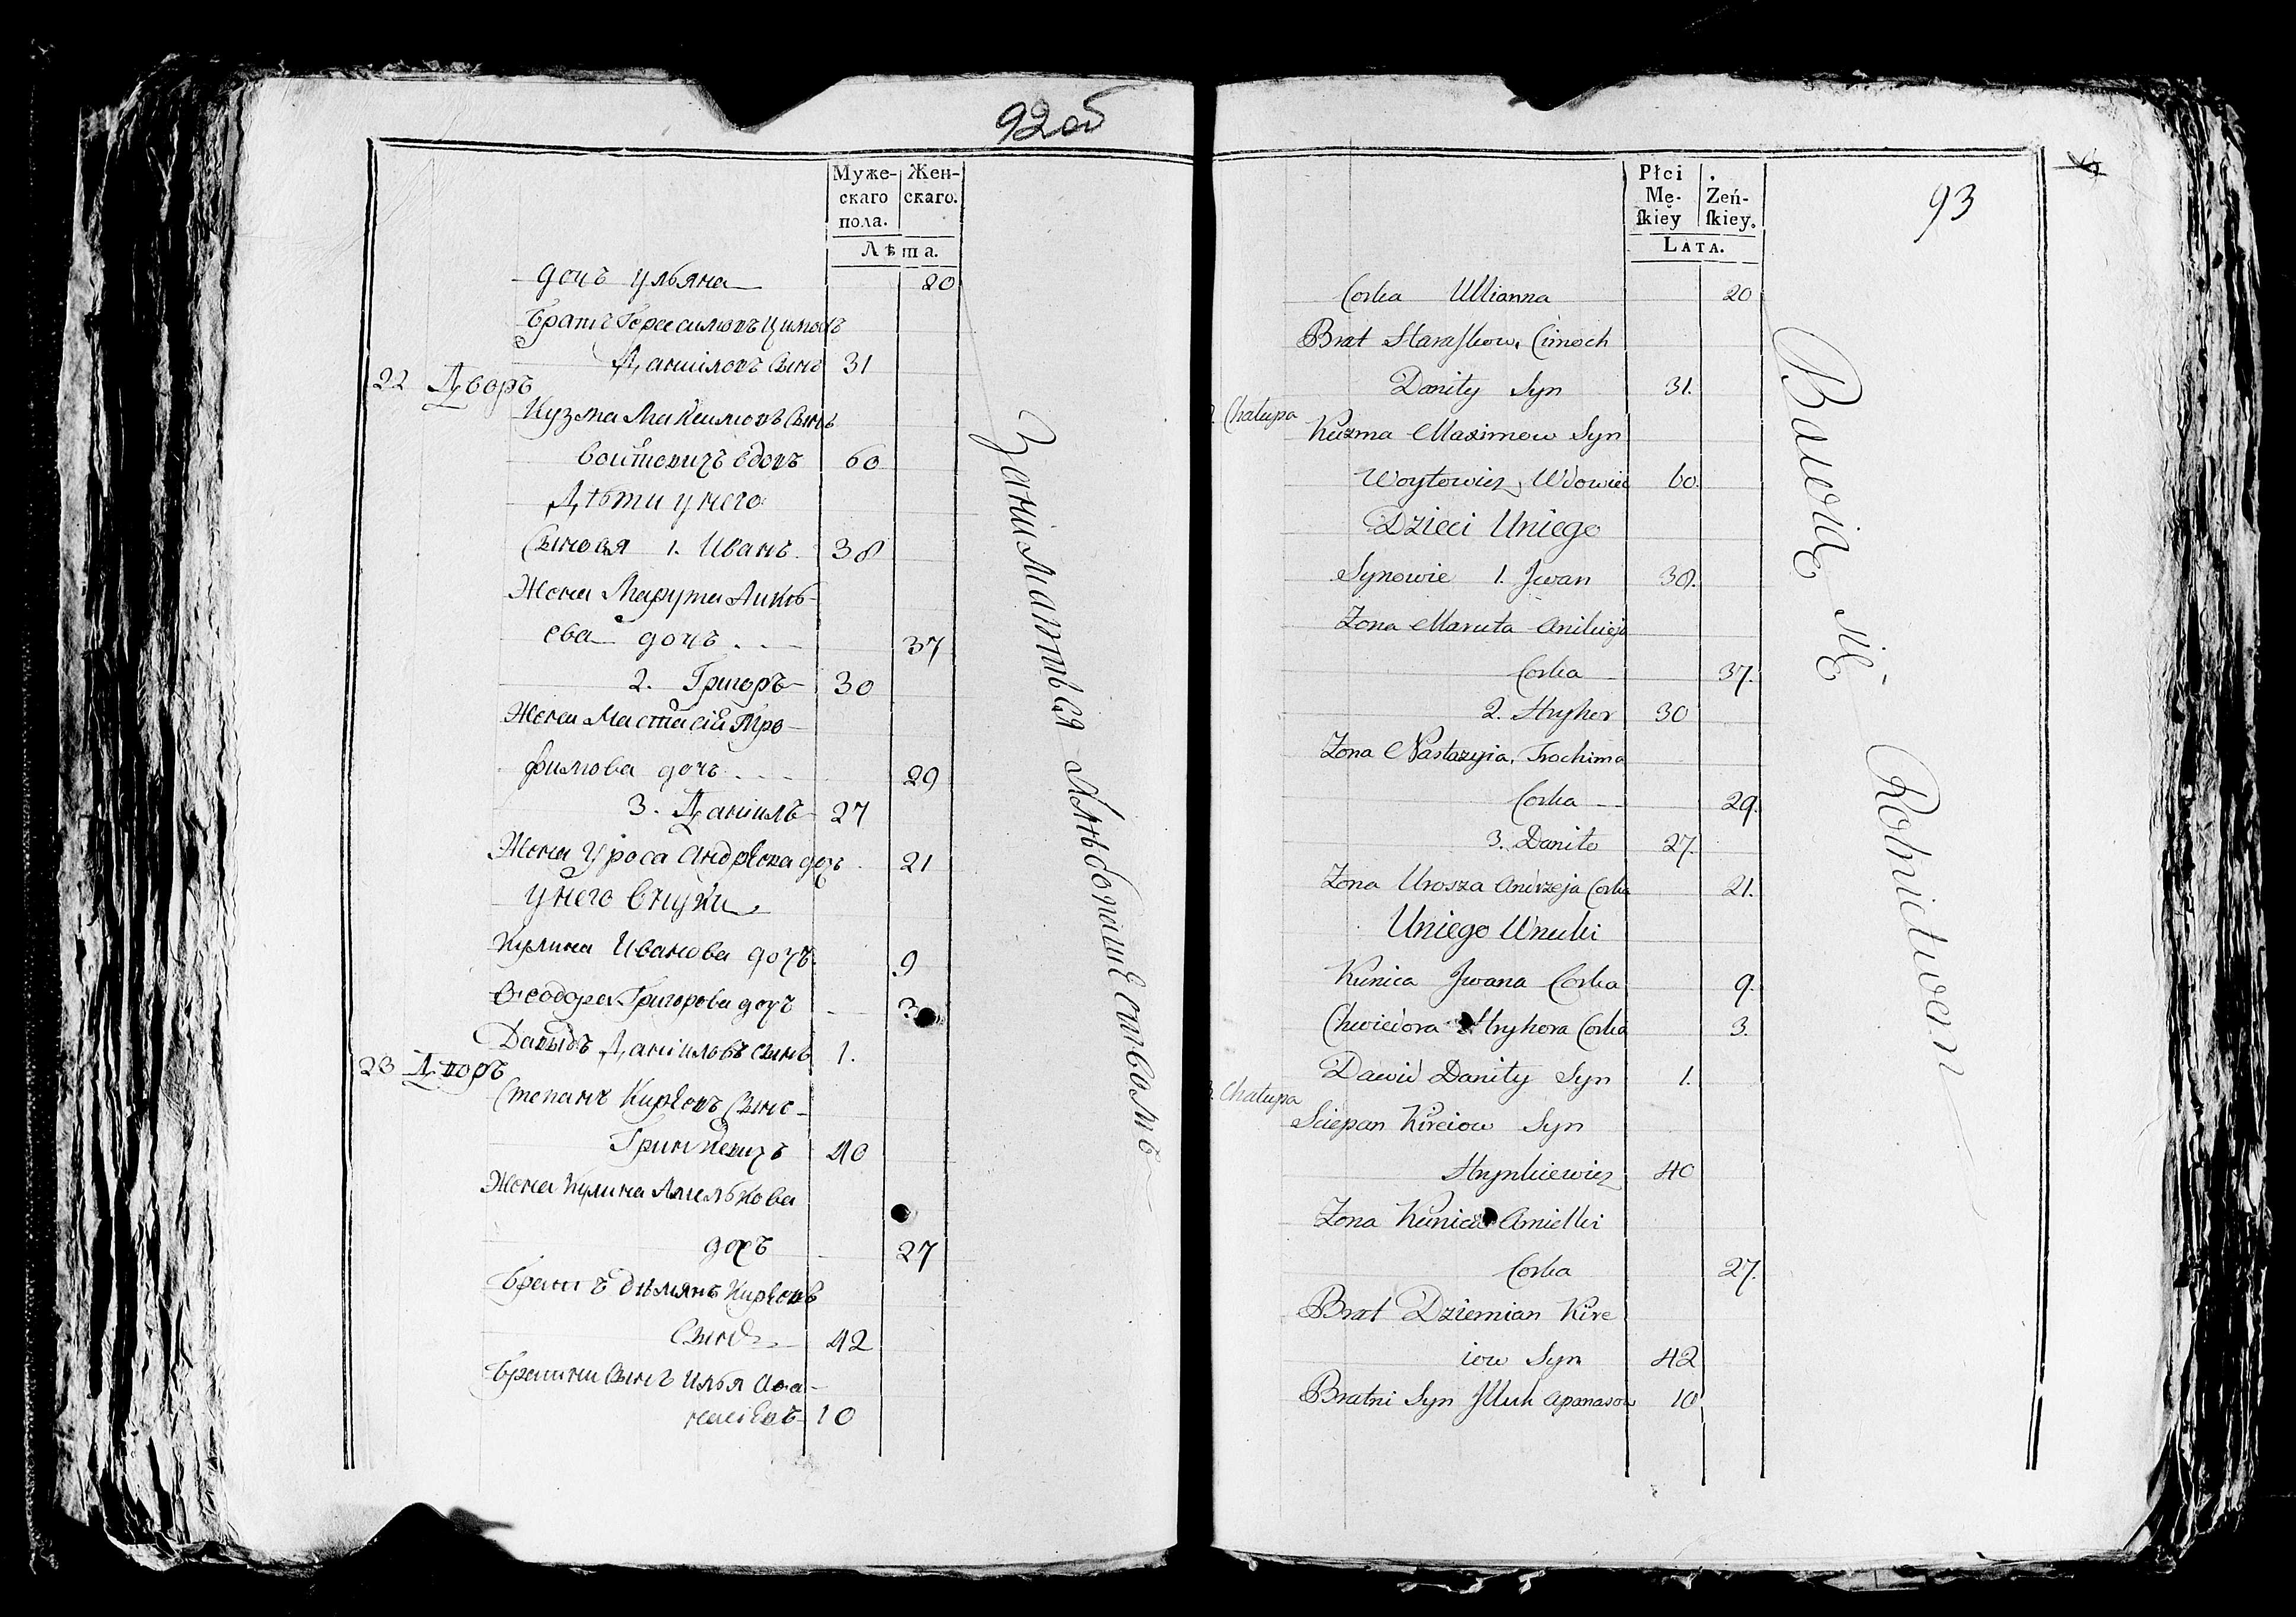 92об
Муже- Жен-
скаго скаго.
пола.
Лѣта.
дочъ Ульяна 20
братъ Герасимовъ Цимохъ
Даниловъ сынъ 31
22 Дворъ
Кузма Максимовъ сынъ
Войтовичъ вдовъ 60
Дѣти унего
Сыновя 1. Иванъ 38
Жена Марута Аникѣ-
ева дочъ 37
2. Григоръ 30
Жена Настасія Тро-
фимова дочъ 29
3. Данилъ 27
Жена Уроса Андрѣева дочъ 21
унего внуки
Кулина Иванова дочъ 9
Ѳеодора Григорова дочъ 3
Давыдъ Даниловъ сынъ 1.
23 Дворъ
Степанъ Кирѣевъ сынъ
Гринкевичъ 40
Жена Кулина Амелькова
дочъ 27
Братъ Дѣмянъ Кирѣевъ
сынъ 42
Братни сынъ Илья Аѳа-
насіевъ 10
Заниматься хлѣбопашествомъ
93
Płci
Mę- Zeń-
ſkiey ſkiey.
LATA.
Corka Ullianna 20
Brat Haraſkow Cimoch
Daniły Syn 31.
Chałupa
Kuzma Maximow Syn
Woytowicz Wdowiec 60.
Dzieci Uniego
Synowie 1. Jwan 38.
Zona Maruta Anikieja
Corka 37.
2. Hryhor 30
Zona Nastazyia Trochima
Corka 29.
3. Daniło 27.
Zona Urosza Andrzeja Corka 21.
Uniego Wnuki
Kunica Jwana Corka 9.
Chwiedora Hryhora Corka 3.
Dawid Daniły Syn 1.
Chałupa
Sciepan Kireiow Syn
Hrynkiewicz 40
Zona Kunica Amielki
Corka 27.
Brat Dziemian Kire
iow Syn 42
Bratni Syn Jlluk Apanasow 10
Bawią się Rolnictwem